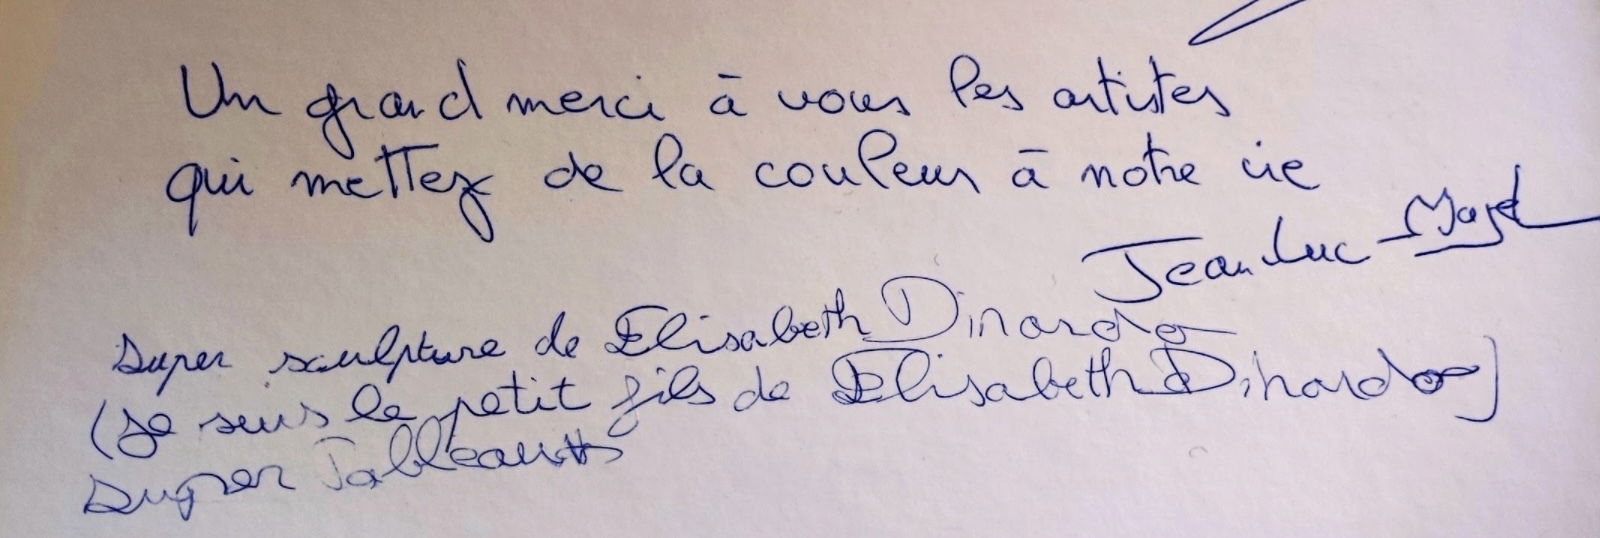 Un grand merci à vous les artistes
qui mettez de la couleur à notre vie
Jean Luc
super sculpture de Elisabeth Dinardo
(je suis le petit fils de Elisabeth Dinardo)
super Tableaux